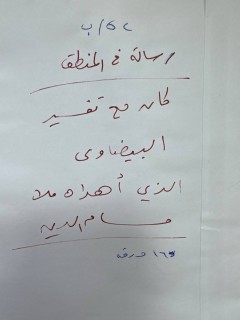 رسالة في المنطق
كان مع تفسير
البيضاوى
الذي أهداه ملا
حسام الدين
ورق